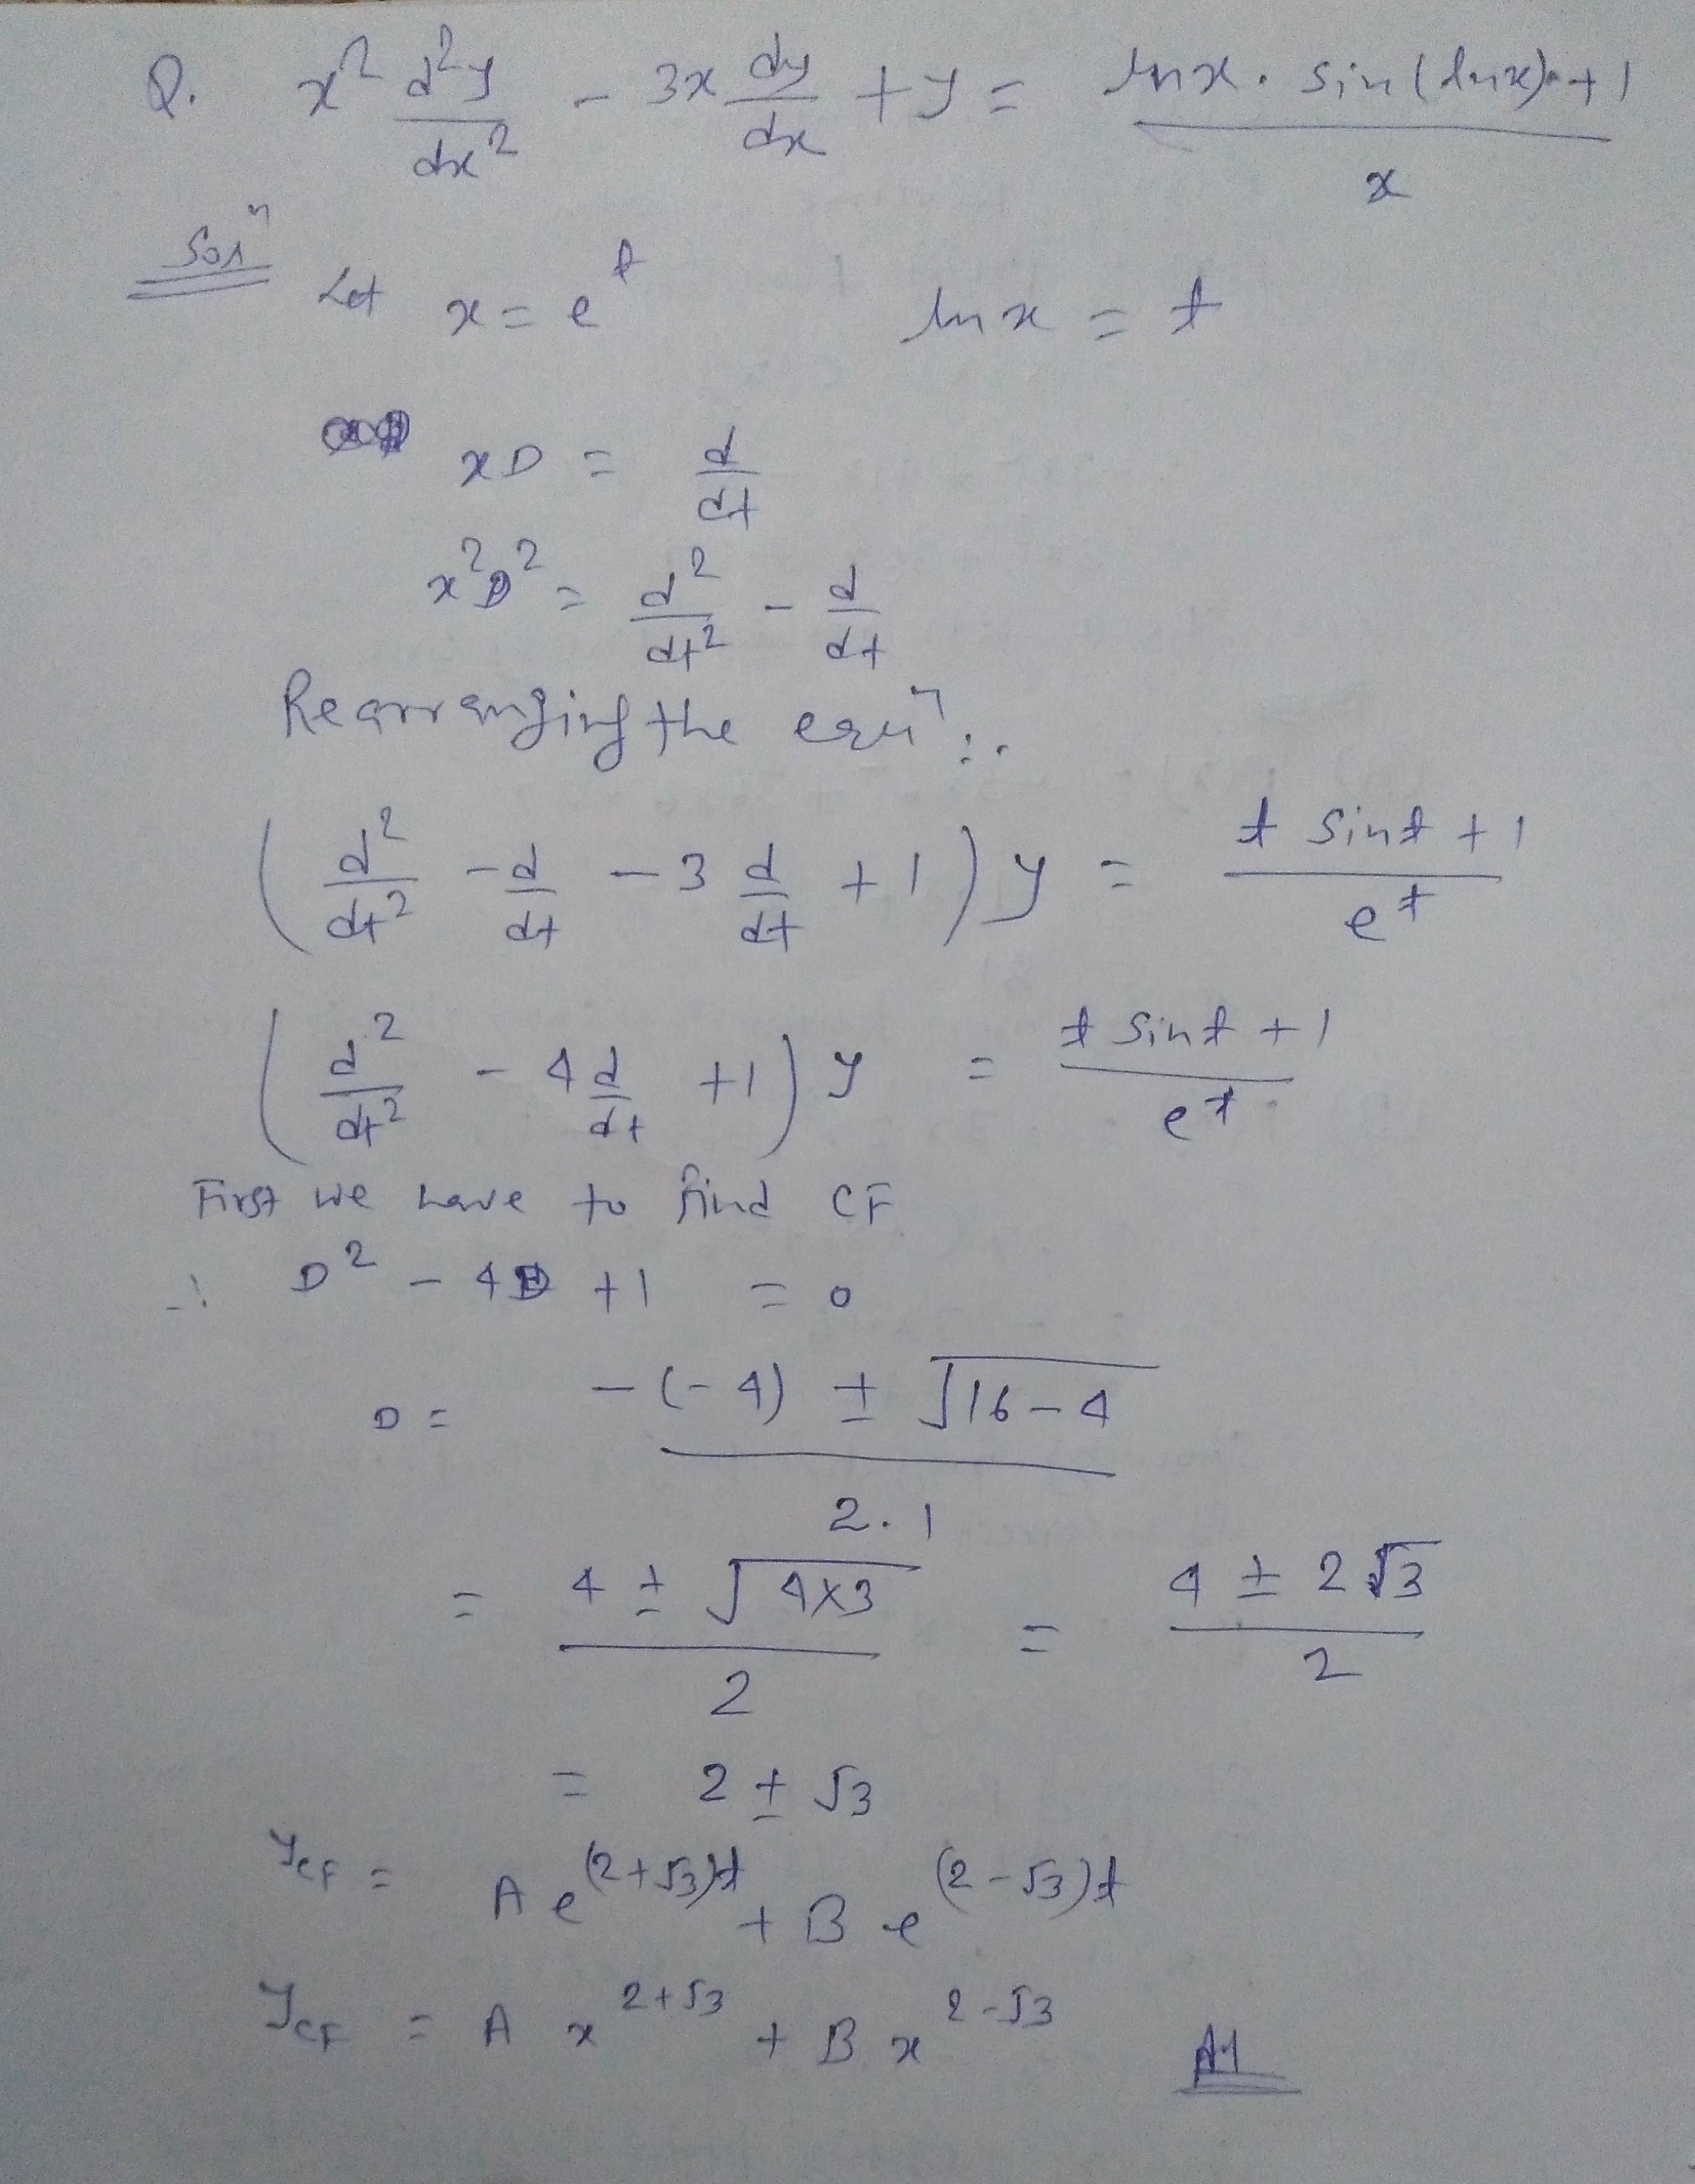 Q. x² d²y/dx² - 3x dy/dx + y = lnx. sin(lnx) + 1 / x
Solⁿ Let x = e^t lnx = t
xD = d/dt
x²D² = d²/dt² - d/dt
Rearranging the equⁿ :.
(d²/dt² - d/dt - 3 d/dt + 1) y = t sint + 1 / e^t
(d²/dt² - 4 d/dt + 1) y = t sint + 1 / e^t
First we have to find CF
∴ D² - 4D + 1 = 0
D = -(-4) ± √16-4 / 2.1
= 4 ± √4x3 / 2 = 4 ± 2√3 / 2
= 2 ± √3
y_CF = A e^(2+√3)t + B e^(2-√3)t
y_CF = A x^2+√3 + B x^2-√3